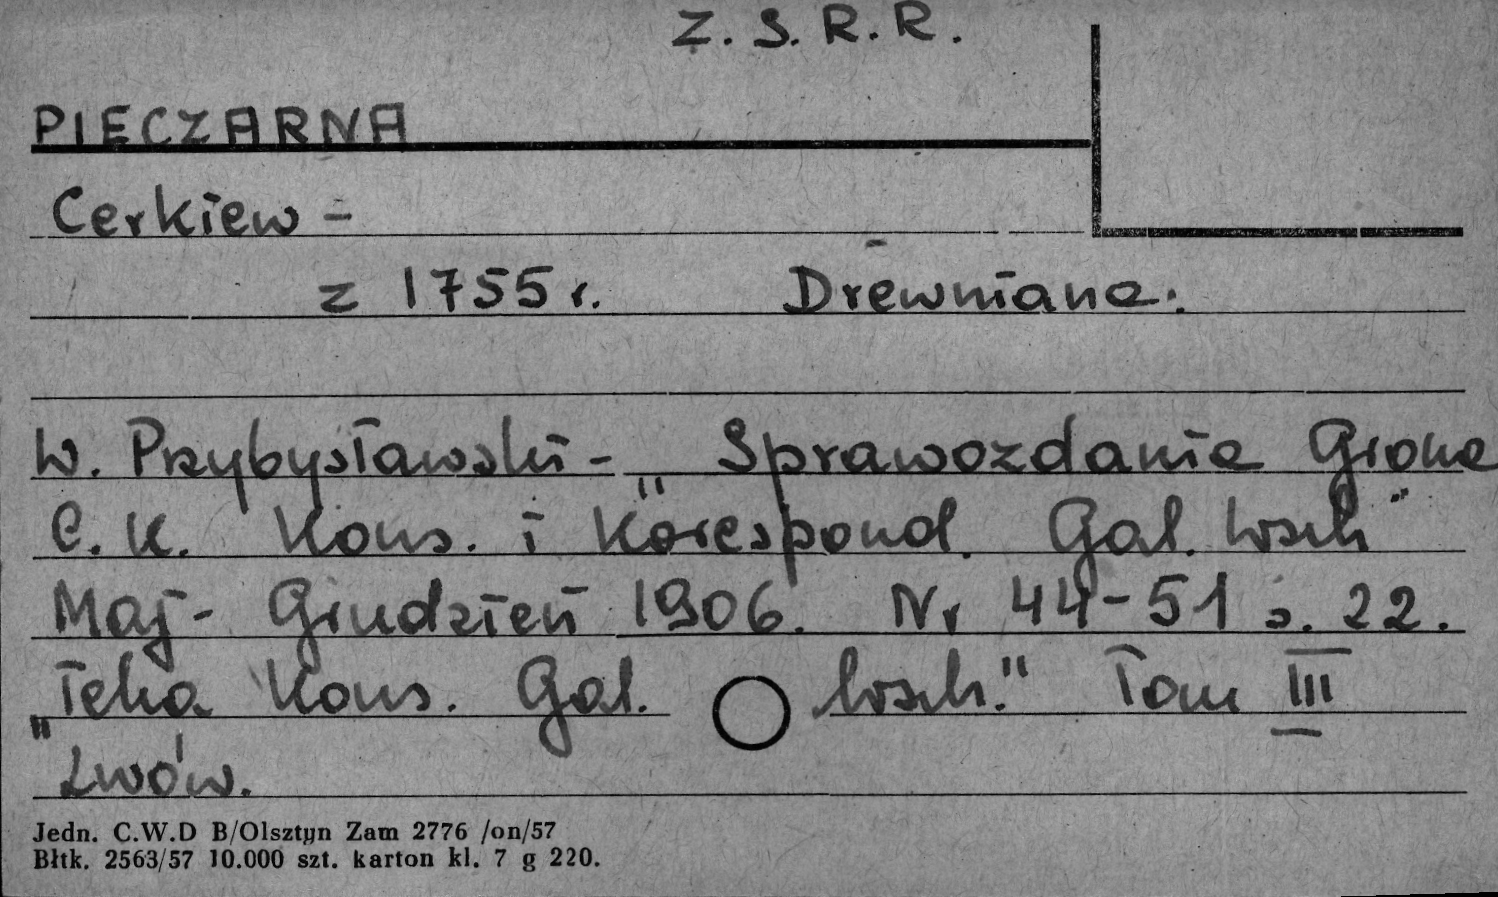 Z. S. R. R.
PIECZARNA
Cerkiew -
z 1755 r. Drewniana.
W. Przybysławski - "Sprawozdania Grona
C. K. Kons. i Korespond. Gal. Wsch"
Maj - Grudzień 1906. Nr 44-51 s. 22.
"Teka Kons. Gal. Wsch." Tom III
Lwów.
Jedn. C.W.D B/Olsztyn Zam 2776 /on/57
Błtk. 2563/57 10.000 szt. karton kl. 7 g 220.